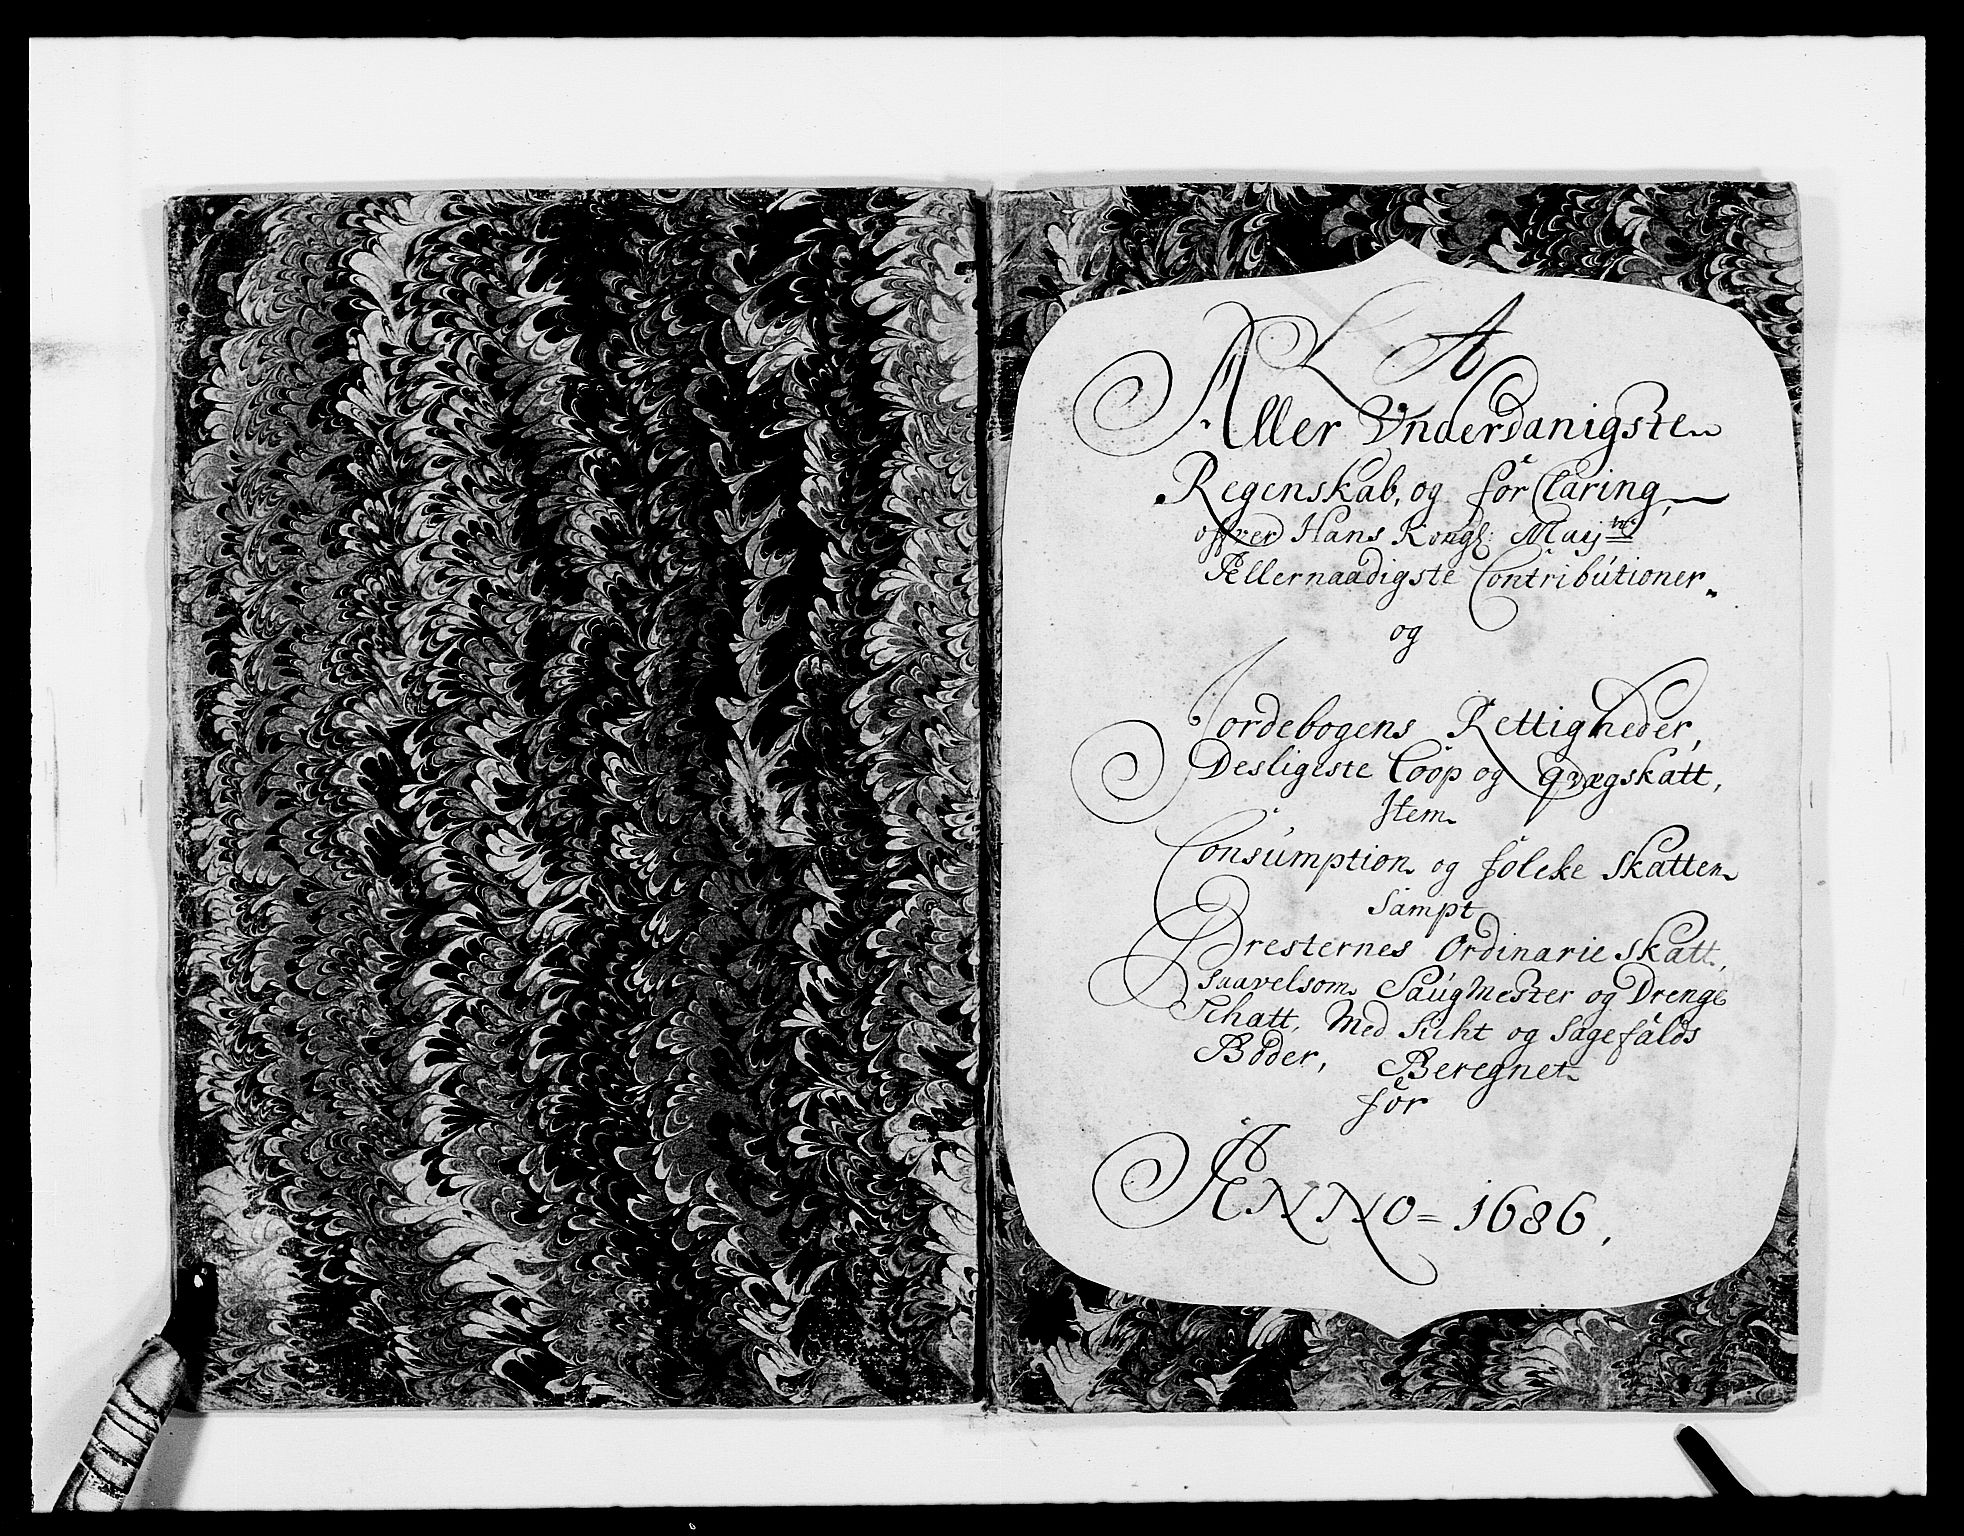 L A
Aller Vnderdanigste
Regenskab, og forClaring,
offver Hans Kongl: Mayts
Allernaadigste Contributioner.
og
Jordebogens Rettigheder,
Desligeste Coop og Qvægskatt,
Item
Consumption og folcke Skatten
Sampt
Presternes Ordinarie Skatt,
saavelsom Saugmester og Drenge
Schatt, Med Sicht og Sagefalds
Böder, Beregnet
for
ANNO = 1686,